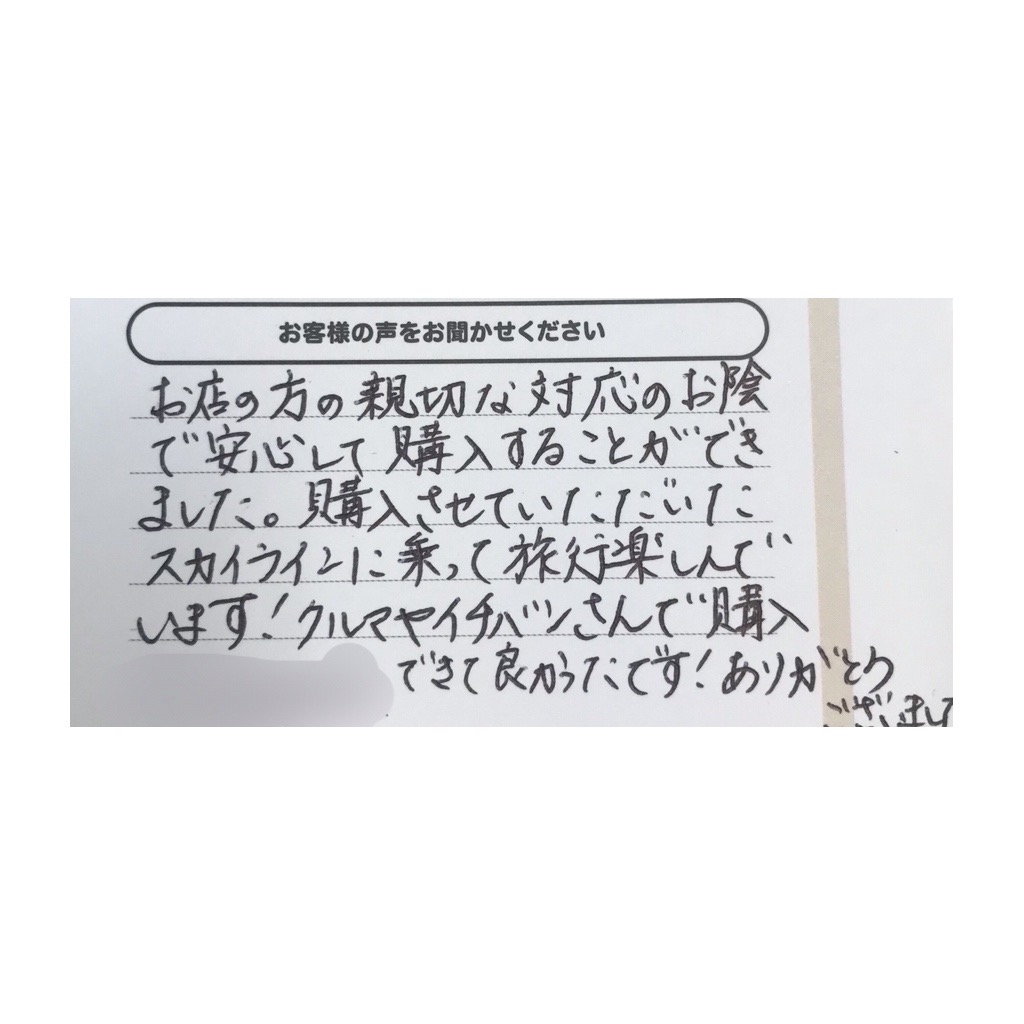 お客様の声をお聞かせください
お店の方の親切な対応のお陰
で安心して購入することができ
ました。購入させていただいた
スカイラインに乗って旅行楽しんで
います!クルマヤイチバンさんで購入
できて良かったです!ありがとう
ございまし